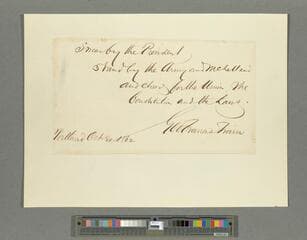 Swear by the President
Stand by the Army and McClellan
and cheer for the Union The
Constitution and the Laws.
Geo Francis Train
Portland Oct